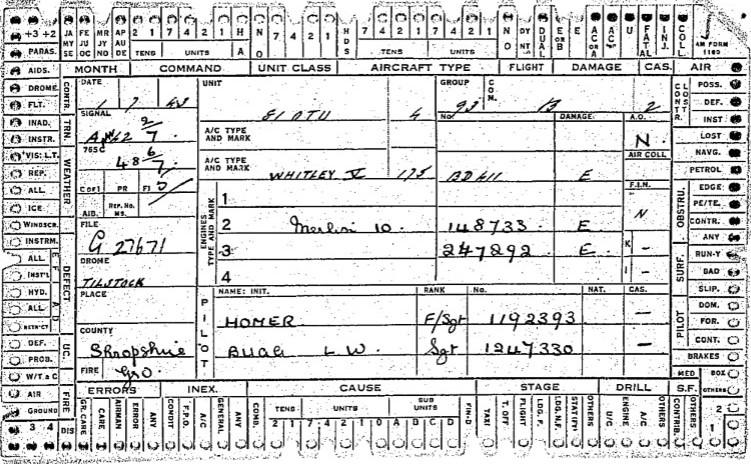 +3 +2 JA FE MR AP 2 1 7 4 2 1 H N 7 4 2 1 H 7 4 2 1 7 4 2 1 N DY DUAL E E AC AC U FATAL INJ. COLL.
MY JU JY AU O NT ORB ORA
SE OC NO DE
PARAS. TENS UNITS A O DS TENS UNITS O AM FORM 1180
AIDS. MONTH COMMAND UNIT CLASS AIRCRAFT TYPE FLIGHT DAMAGE CAS. AIR POSS.
DROME CONTR. DATE UNIT GROUP COM. CONTR. CLOST DEF.
FLT. 1 7 43 81 OTU 4 93 B 2
INAD. TRN. SIGNAL No DAMAGE A.O. INST
INSTR. A/C TYPE AND MARK N. LOST
VIS: L.T. 765C AIR COLL NAVG.
REP. WEATHER 48 6/7 A/C TYPE AND MARK WHITLEY V 175 BD411 E PETROL
ALL C OF I PR FI F.I.N. OBSTRU. EDGE
ICE AIB. REP. No. MS. ENGINES TYPE AND MARK 1 N PE/TE.
WINDSCR. FILE 2 Merlin 10. 148733. E CONTR.
INSTRM. G 27671 3 247892. E K - ANY
ALL DEFECT DROME 4 I - SURF. RUN-Y
INST'L TILSTOCK BAD
HYD. PLACE PILOT NAME: INIT. RANK No. NAT. CAS. SLIP.
ALL HOMER F/Sgt 1192393 - PILOT DOM.
RETR'CT COUNTY FOR.
DEF. UC. Shropshire L W. Sgt 1247330 - CONT.
PROB. FIRE BRAKES
W/T & C Gro MED BOX
AIR FIRE ERRORS INEX. CAUSE STAGE DRILL S.F. OTHERS
GROUND DIS GR. CARE CARE AIRMAN ERROR ANY CONDIT F.P.O. A/C GENERAL ANY COMB. TENS UNITS SUB UNITS FIN-D TAXI T. OFF FLIGHT LDG. F. LDG. N.F. STAT(FY) OTHERS U/C ENGINE A/C OTHERS CONTRIB. OTHERS 2
3 4 2 1 7 4 2 1 0 A B C D 1